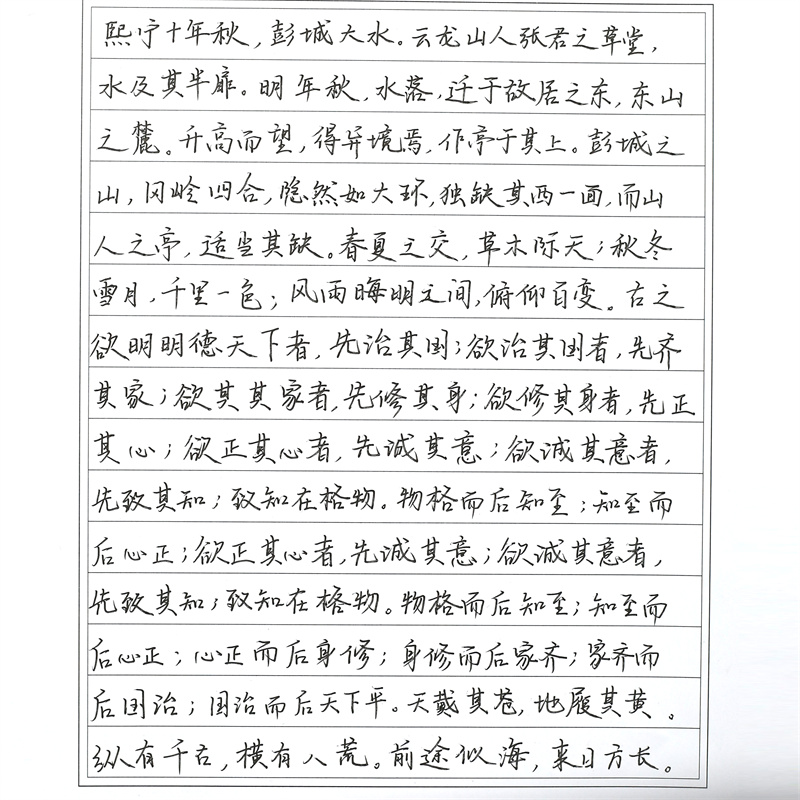 熙宁十年秋，彭城大水。云龙山人张君之草堂，
水及其半扉。明年秋，水落，迁于故居之东，东山
之麓。升高而望，得异境焉，作亭于其上。彭城之
山，冈岭四合，隐然如大环，独缺其西一面，而山
人之亭，适当其缺。春夏之交，草木际天；秋冬
雪月，千里一色；风雨晦明之间，俯仰百变。古之
欲明明德天下者，先治其国；欲治其国者，先齐
其家；欲其其家者，先修其身；欲修其身者，先正
其心；欲正其心者，先诚其意；欲诚其意者，
先致其知；致知在格物。物格而后知至；知至而
后心正；欲正其心者，先诚其意；欲诚其意者，
先致其知；致知在格物。物格而后知至；知至而
后心正；心正而后身修；身修而后家齐；家齐而
后国治；国治而后天下平。天戴其苍，地履其黄。
纵有千古，横有八荒。前途似海，来日方长。